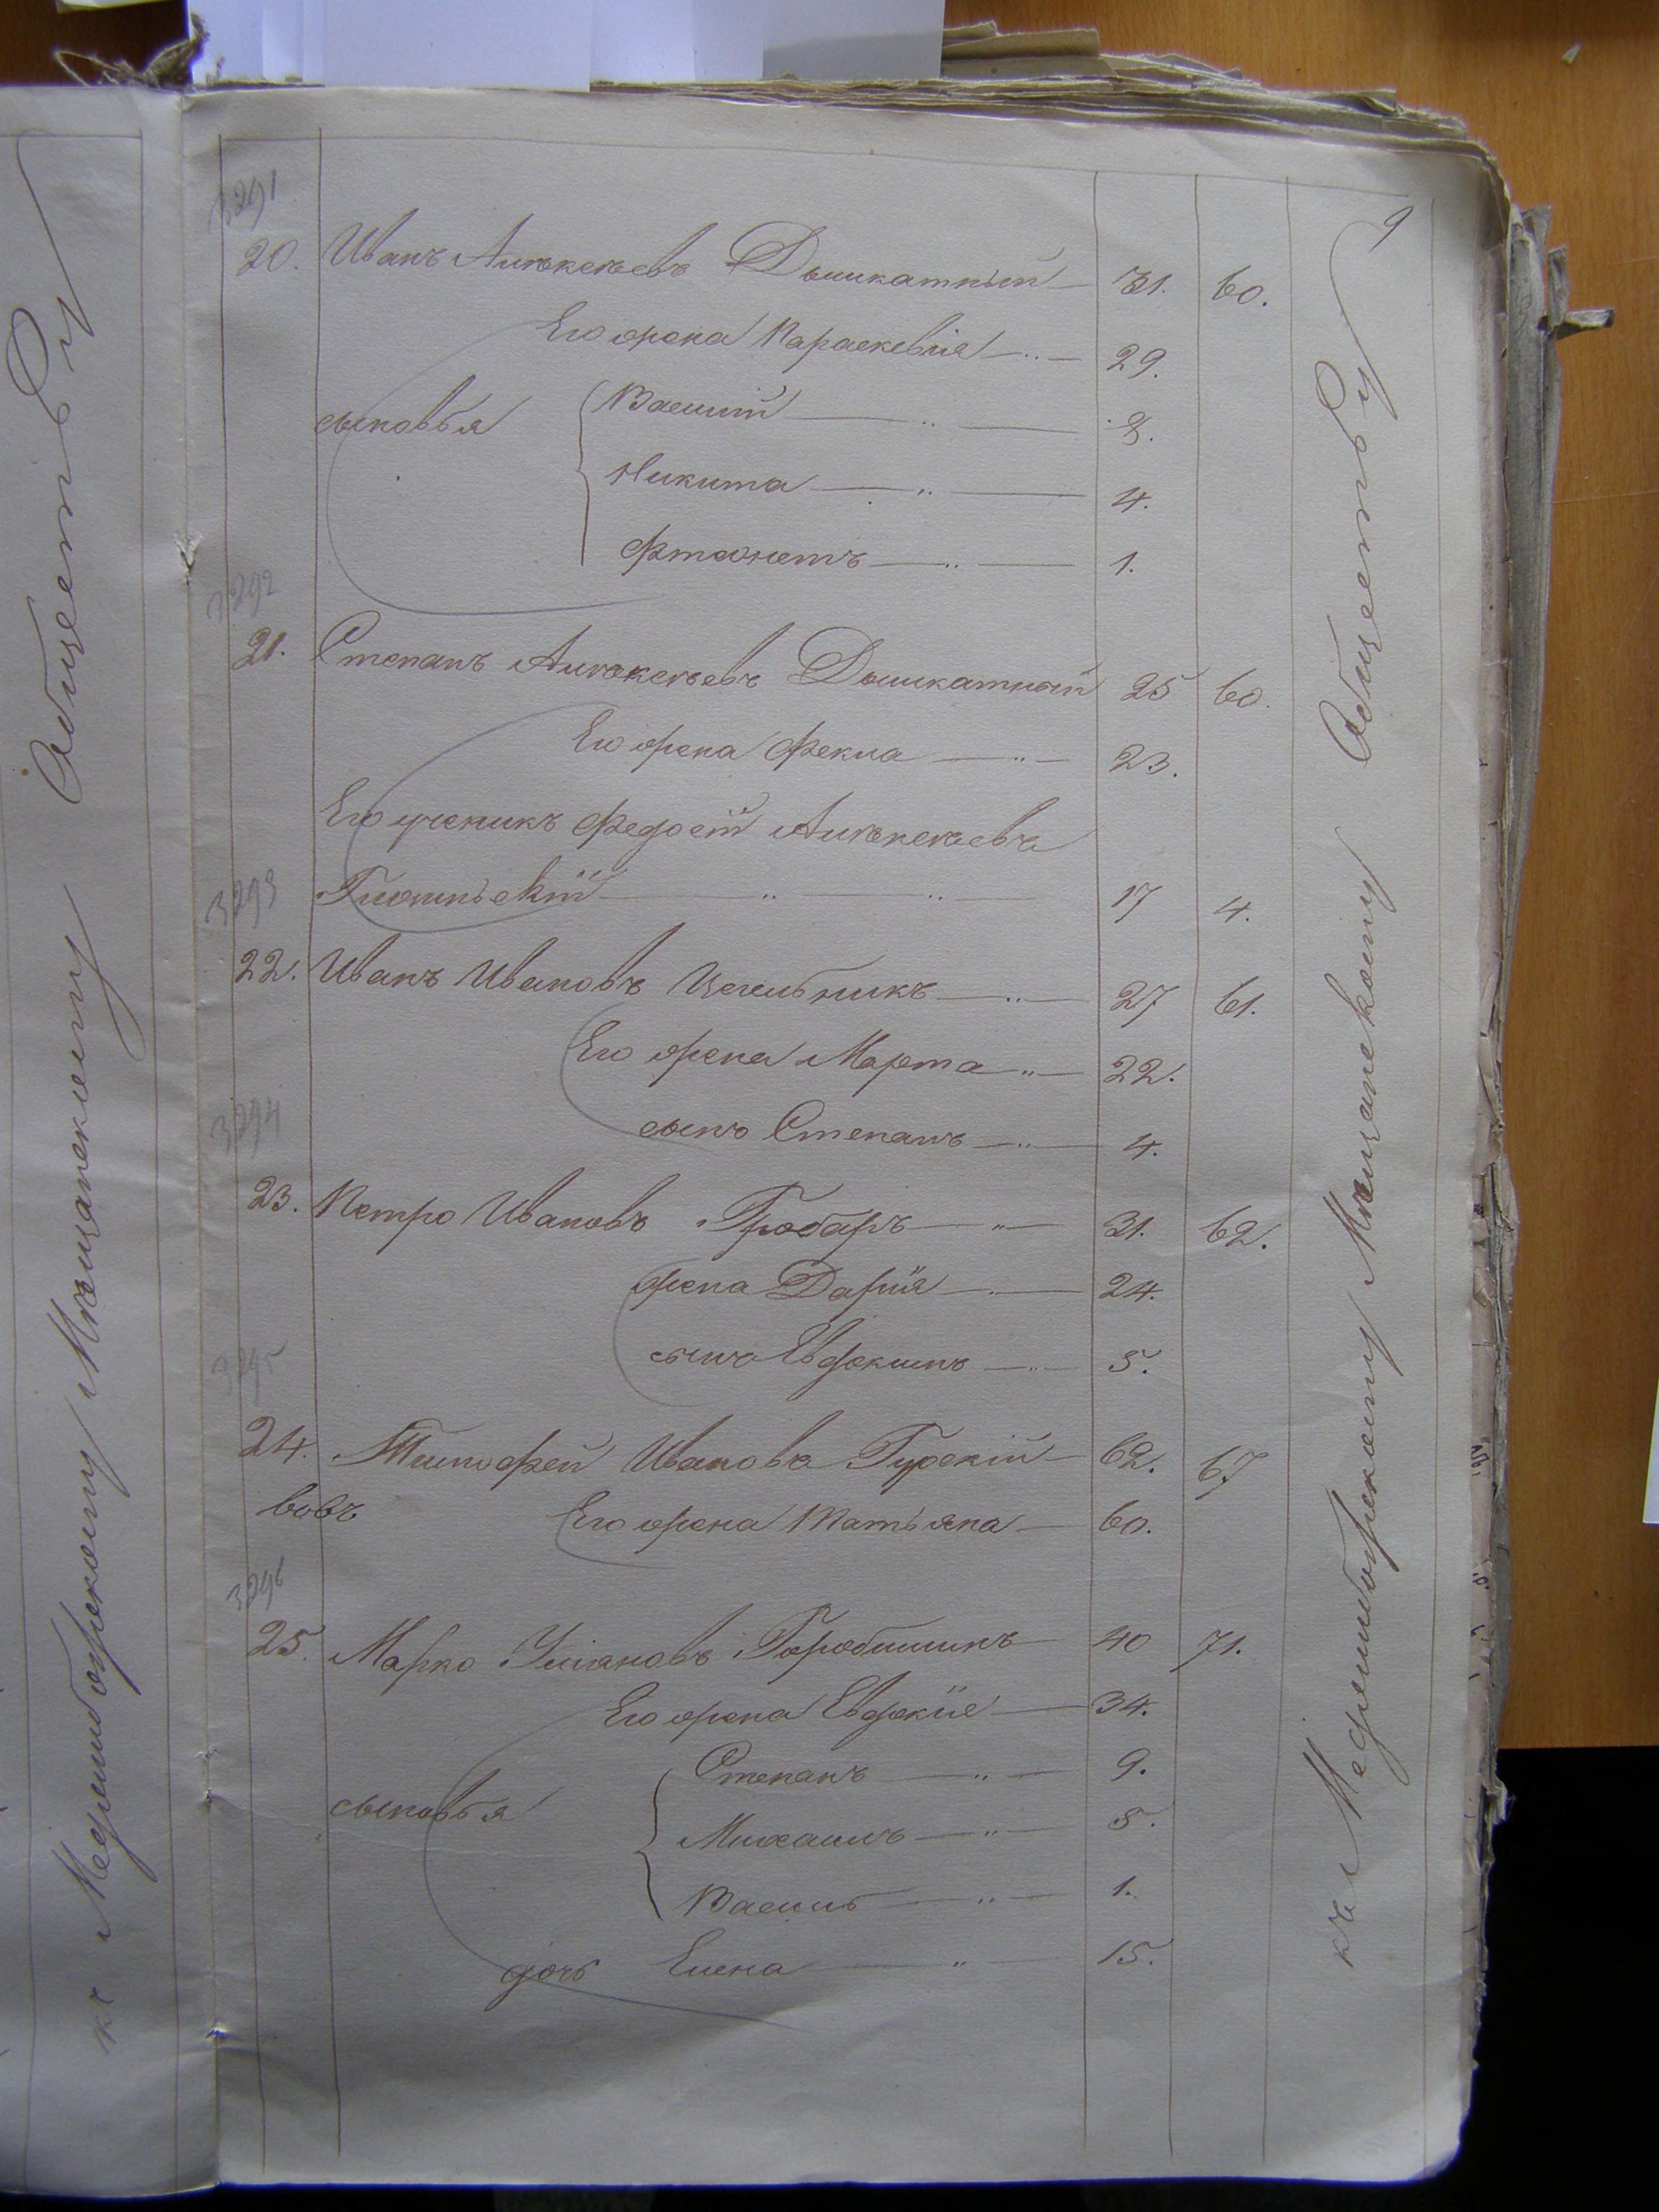 9
3291
20. Иванъ Алексѣевъ Дышкатный — 31. 60.
Его жена Параскевія — 29.
сыновья
Василій — 8.
Никита — 4.
1.
3292
21. Степанъ Алексѣевъ Дышкатный 25 60.
Его жена Фекла — 23.
Его ученикъ Федосій Алексѣевъ
17 4.
3293
22. Иванъ Ивановъ — 27 61.
Его жена Марта — 22.
сынъ Степанъ — 4.
3294
23. Петро Ивановъ Гробаръ — 31. 62.
жена Дарія — 24.
сынъ Евдокимъ — 5.
3295
24. Тимофей Ивановъ Гурскій — 62. 67
вовъ Его жена Татьяна — 60.
3296
25. Марко Уліяновъ — 40 71.
Его жена Евдокія — 34.
Степанъ — 9.
сыновья
Михаилъ — 5.
Василь — 1.
дочь Елена — 15.
къ Меджибожскому Мѣщанскому Обществу
къ Меджибожскому Мѣщанскому Обществу